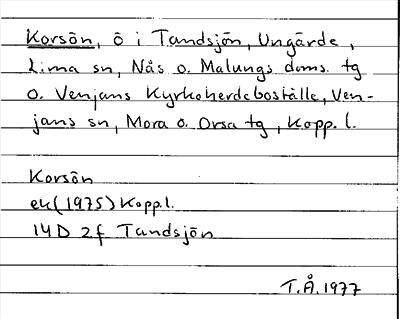 Korsön, ö i Tandsjön, Ungärde,
Lima sn, Nås o. Malungs doms. tg
o. Venjans Kyrkoherdeboställe, Ven-
jans sn, Mora o. Orsa tg, Kopp. l.
Korsön
ek (1975) Kopp.l.
14D 2f Tandsjön
T.Å.1977